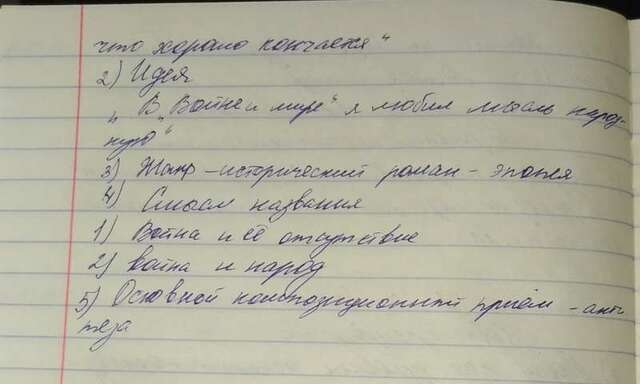 что хорошо кончается"
2) Идея
„В „Войне и мире" я любил мысль народ-
ную"
3) Жанр - исторический роман - эпопея
4) Смысл названия
1) Война и её отсутствие
2) война и народ
5) Основной композиционный приём - анти
теза